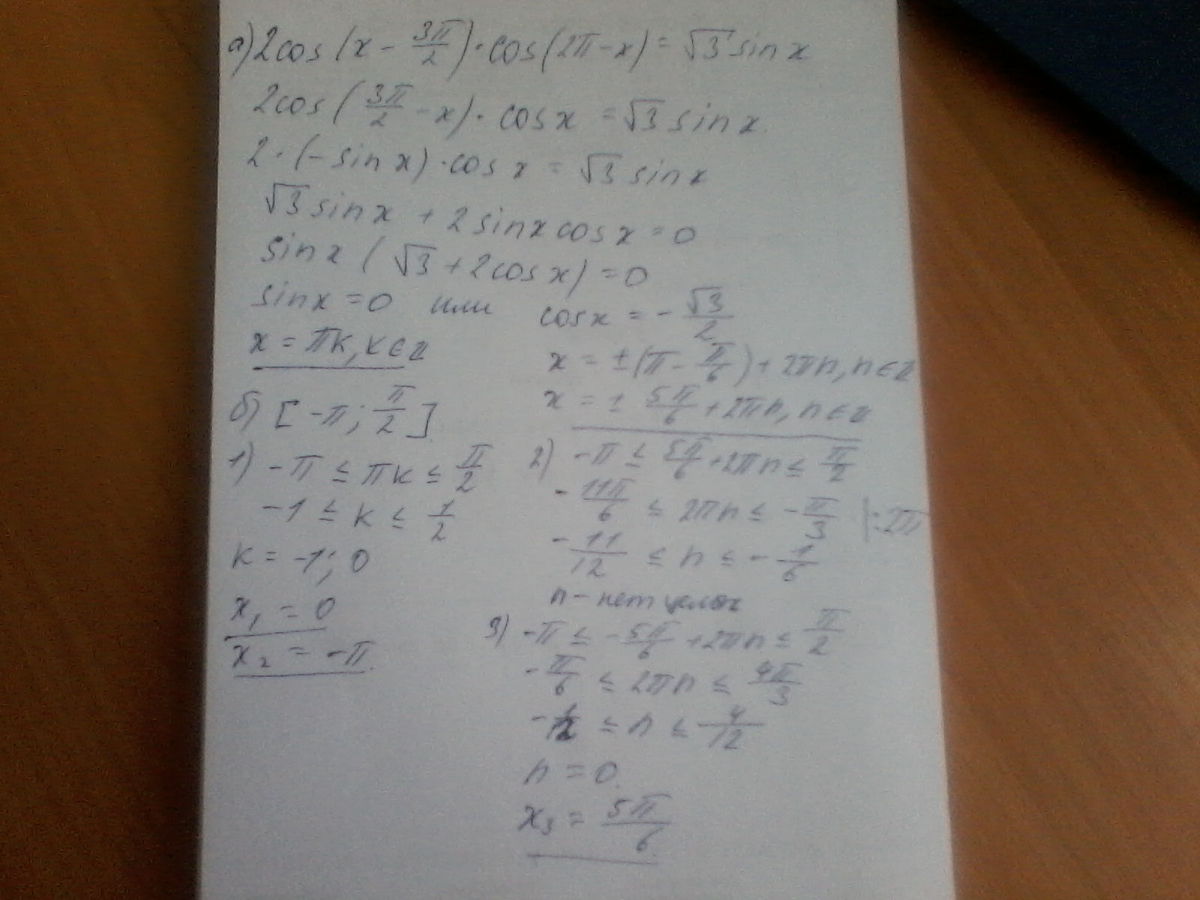 а) 2cos(x - 3π/2)·cos(2π-x) = √3 sinx
2cos(3π/2 - x)·cosx = √3 sinx.
2·(-sinx)·cosx = √3 sinx
√3 sinx + 2sinxcosx = 0
sinx(√3 + 2cosx) = 0
sinx = 0 или cosx = -√3/2
x = πk, k∈z
x = ±(π - π/6) + 2πn, n∈z
x = ± 5π/6 + 2πn, n∈z
б) [-π; π/2]
1) -π ≤ πk ≤ π/2
-1 ≤ k ≤ 1/2
k = -1; 0
x₁ = 0
x₂ = -π.
2) -π ≤ 5π/6 + 2πn ≤ π/2
-11π/6 ≤ 2πn ≤ -π/3 |:2π
-11/12 ≤ n ≤ -1/6
n - нет целых
3) -π ≤ -5π/6 + 2πn ≤ π/2
-π/6 ≤ 2πn ≤ 4π/3
-1/12 ≤ n ≤ 4/12
n = 0.
x₃ = 5π/6